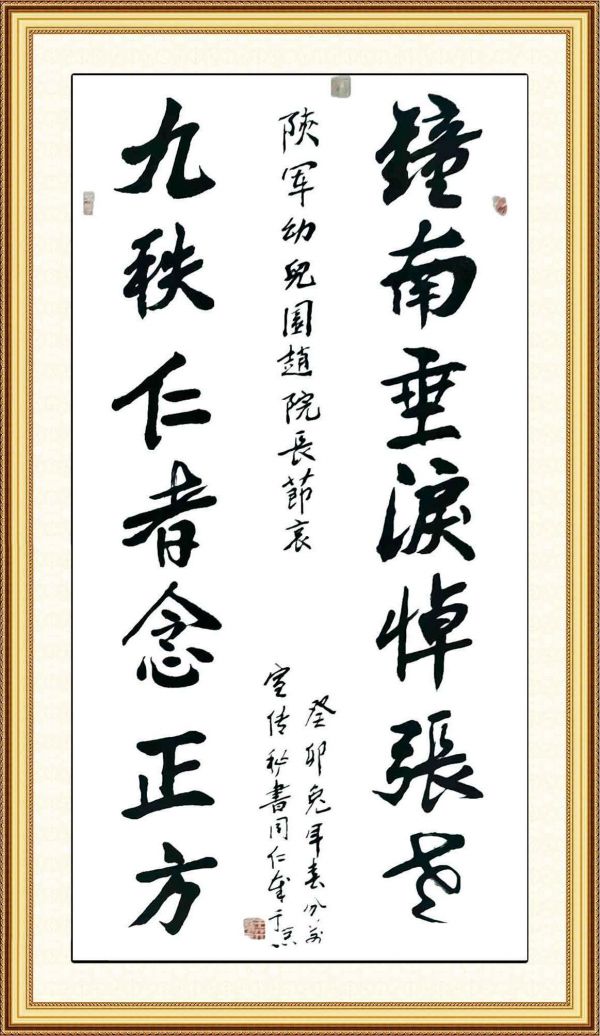 鐘南垂淚悼張老
陝军幼兒園趙院長節哀
癸卯兔年春分前
宣传秘書同仁
九秩仁者念正方